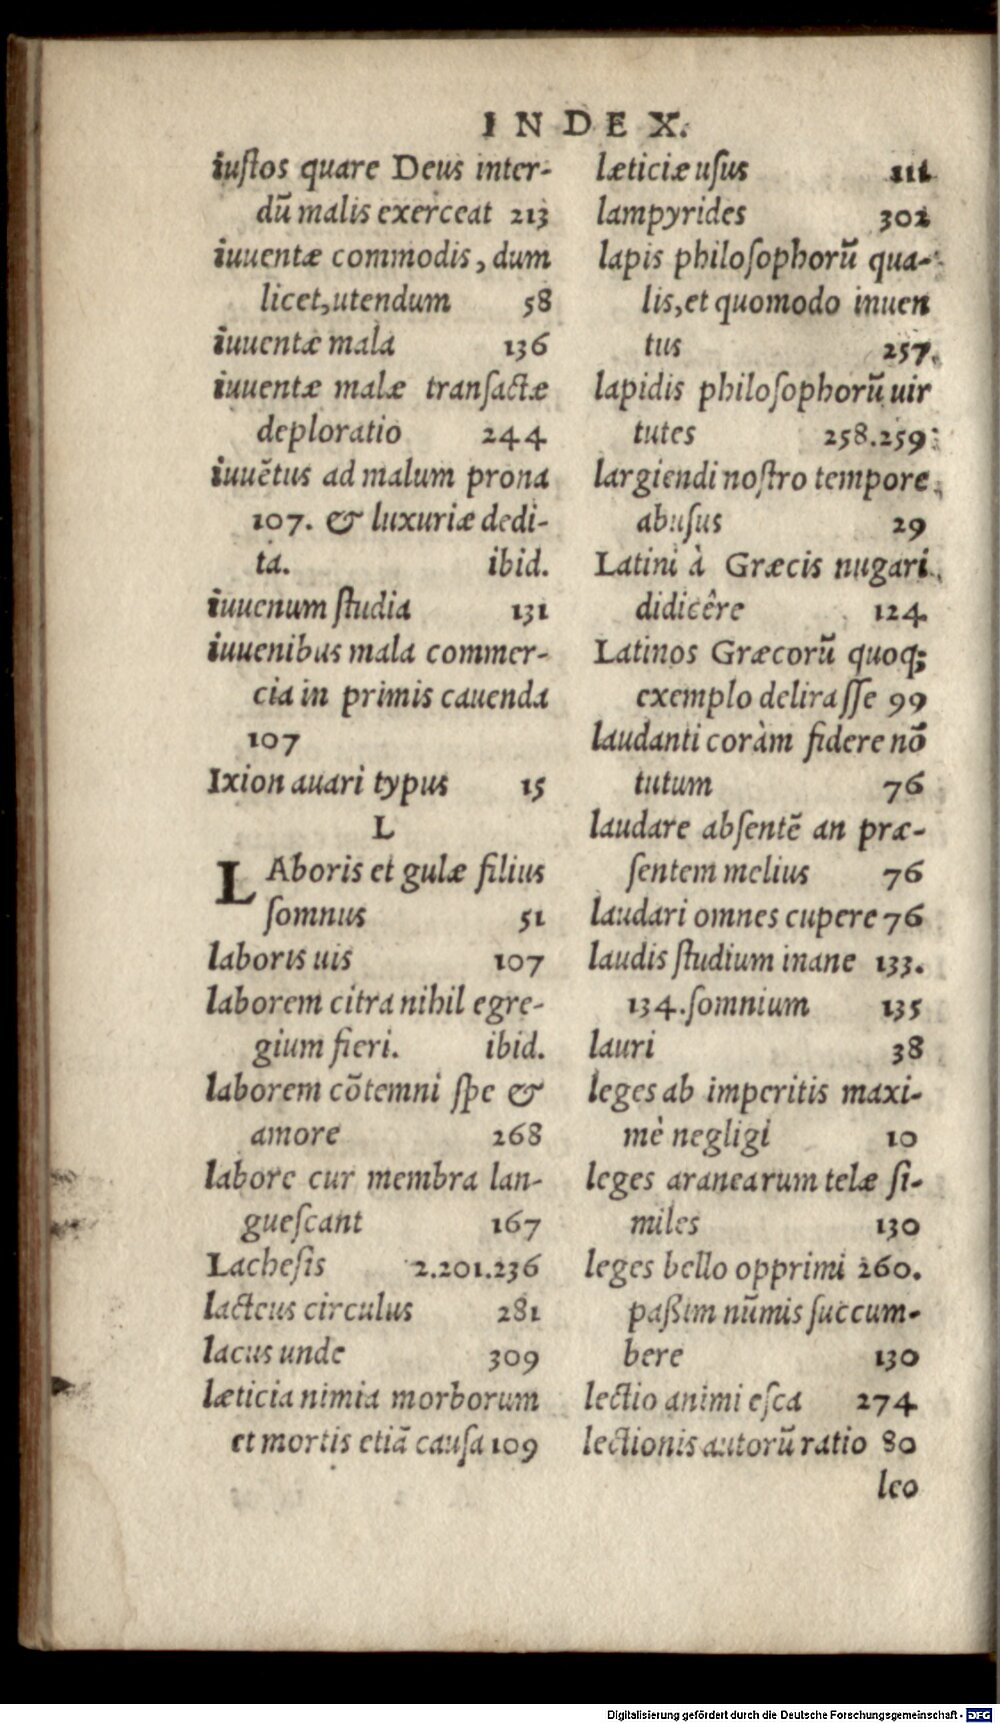 INDEX.
iuſtos quare Deus inter-
dũ malis exerceat 213
iuuentæ commodis, dum
licet, utendum 58
iuuentæ mala 136
iuuentæ malæ tranſactæ
deploratio 244
iuuẽtus ad malum prona
107. & luxuriæ dedi-
ta. ibid.
iuuenum ſtudia 131
iuuenibus mala commer-
cia in primis cauenda
107
Ixion auari typus 15
L
LAboris et gulæ filius
ſomnus 51
laboris uis 107
laborem citra nihil egre-
gium fieri. ibid.
laborem cõtemni ſpe &
amore 268
labore cur membra lan-
gueſcant 167
Lacheſis 2.201.236
lacteus circulus 281
lacus unde 309
læticia nimia morborum
et mortis etiã cauſa 109
læticiæ uſus 111
lampyrides 302
lapis philoſophorũ qua-
lis, et quomodo inuen
tus 257.
lapidis philoſophorũ uir
tutes 258.259
largiendi noſtro tempore
abuſus 29
Latini à Græcis nugari
didicêre 124
Latinos Græcorũ quoq;
exemplo deliraſſe 99
laudanti coràm fidere nõ
tutum 76
laudare abſentẽ an præ-
ſentem melius 76
laudari omnes cupere 76
laudis ſtudium inane 133.
134. ſomnium 135
lauri 38
leges ab imperitis maxi-
mè negligi 10
leges aranearum telæ ſi-
miles 130
leges bello opprimi 260.
paßim nũmis ſuccum-
bere 130
lectio animi eſca 274
lectionis autorũ ratio 80
leo
Digitalisierung gefördert durch die Deutsche Forschungsgemeinschaft - DFG